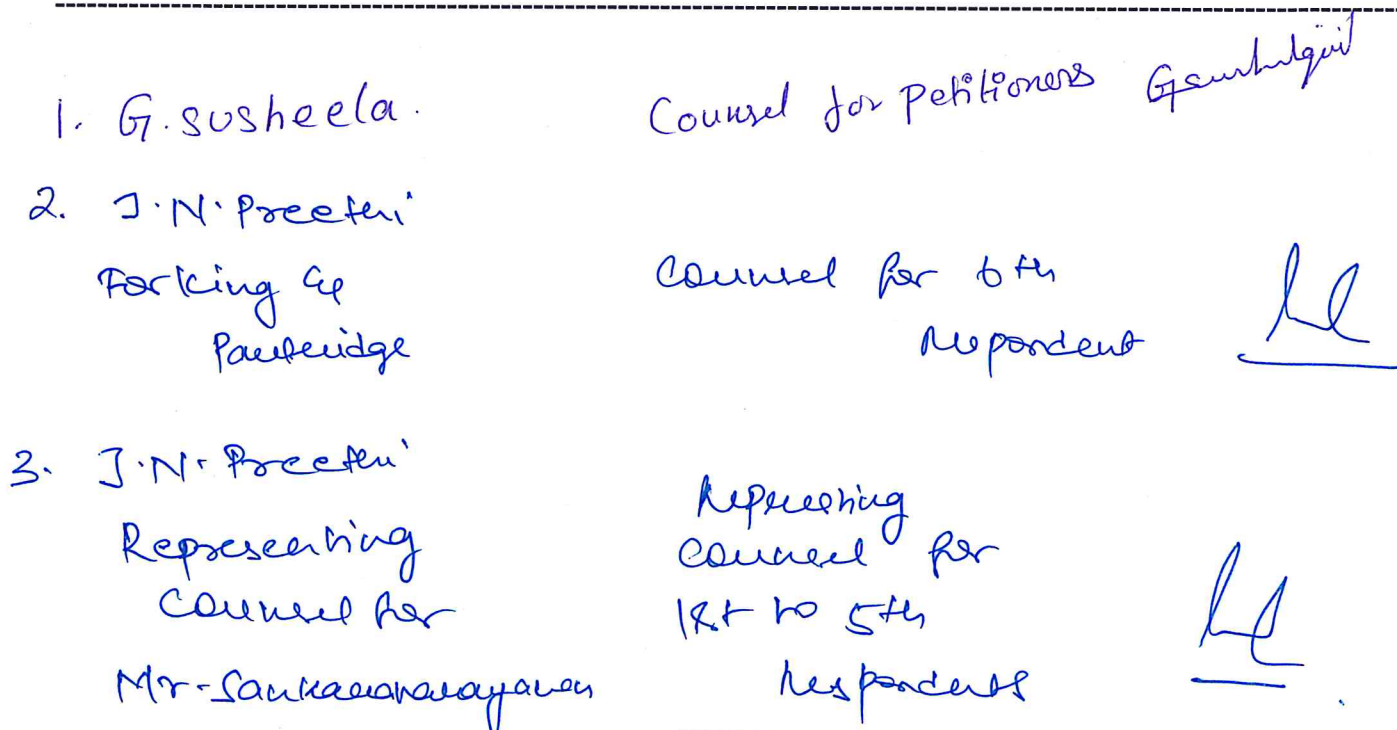 1. G. susheela. Counsel for Petitioners
2. J.N. Preethi
For King &
Partridge
Counsel for 6th
Respondent
3. J.N. Preethi
Representing
Counsel for
Mr. Sankaranarayanan
Representing
Counsel for
1st to 5th
Respondents